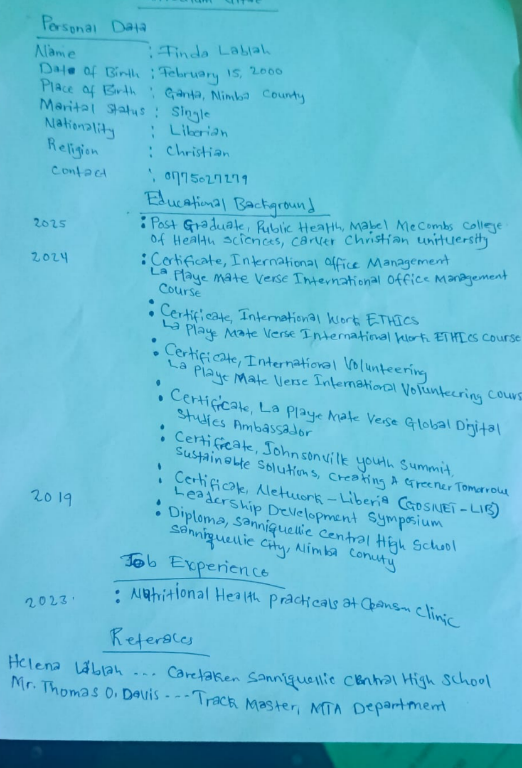 Personal Data
Name : Tinda Lablah
Date of Birth : February 15, 2000
Place of Birth : Ganta, Nimba County
Marital Status : Single
Nationality : Liberian
Religion : Christian
Contact : 0775027279
Educational Background
2025 : Post Graduate, Public Health, Mabel McCombs College
of Health Sciences, Carver Christian unituersity
2024 : Certificate, International Office Management
La Playe Mate Verse International Office Management
Course
• Certificate, International Work ETHICS
La Playe Mate Verse International Work ETHICS course
• Certificate, International Volunteering
La Playe Mate Verse International Volunteering Cours
• Certificate, La Playe Mate Verse Global Digital
Studies Ambassador
• Certificate, Johnsonville youth Summit,
Sustainable Solutions, Creating A Greener Tomorrow
• Certificate, Network - Liberia (GOSNET-LIB)
Leadership Development Symposium
2019 • Diploma, Sanniquellie Central High School
Sanniquellie City, Nimba Conuty
Job Experience
2023. : Nutritional Health practicals at Clinic
Referaces
Helena Lablah --- Caretaker Sanniquellie Central High School
Mr. Thomas O. Davis --- Track Master, MTA Department